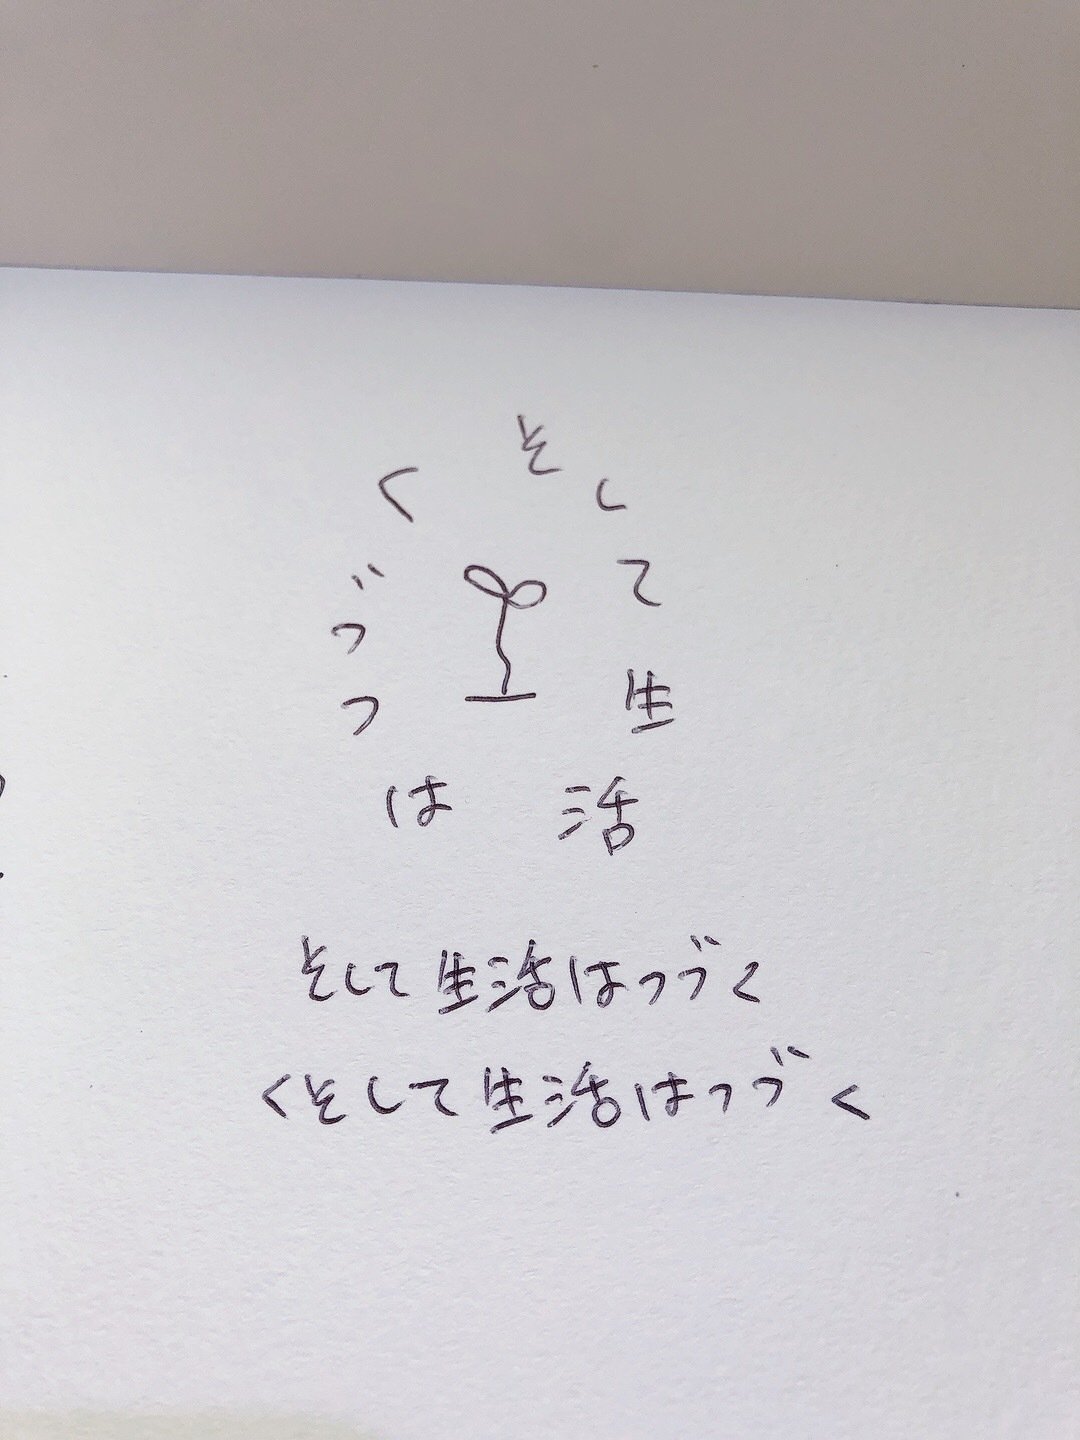 そして生活はつづく
そして生活はつづく
くそして生活はつづく